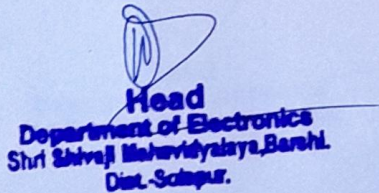 Head
Department of Electronics
Shri Shivaji Mahavidyalaya,Barshi.
Dist.-Solapur.